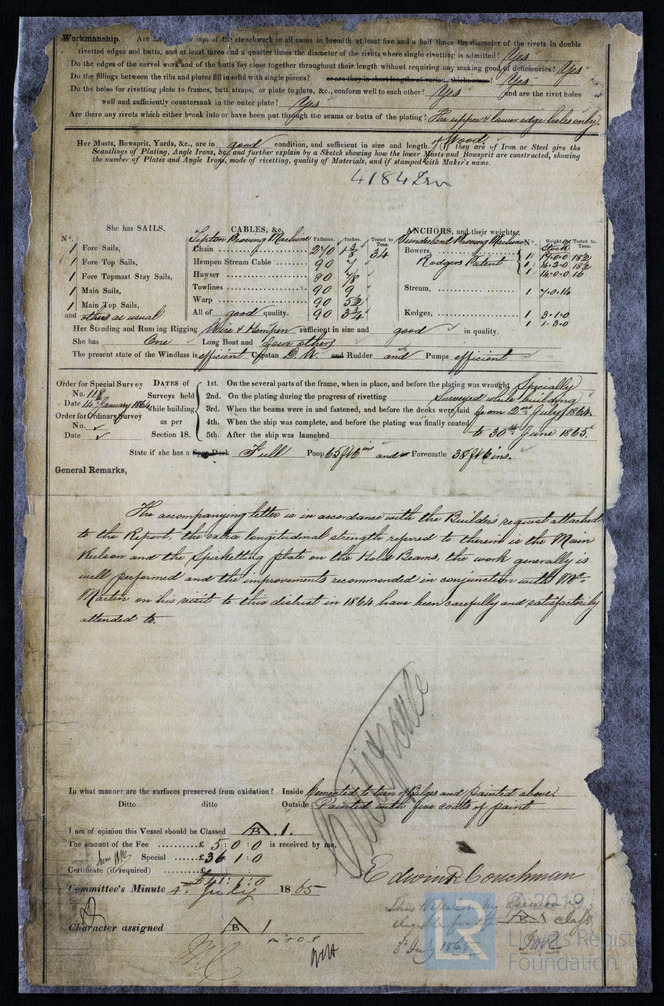 Workmanship. Are of the clenchwork in all cases in breadth at least five and a half times the diameter of the rivets in double
rivetted edges and butts, and at least three and a quarter times the diameter of the rivets where single rivetting is admitted? Yes
Do the edges of the curvel work and of the butts fay close together throughout their length without requiring any making good of deficiencies? Yes
Do the fillings between the ribs and plates fill in solid with single pieces? Yes
Do the holes for rivetting plate to frames, butt straps, or plate to plate, &c., conform well to each other? Yes and are the rivet holes
well and sufficiently countersunk in the outer plate? Yes
Are there any rivets which either break into or have been put through the seams or butts of the plating? The upper & lower edge holes only.
Her Masts, Bowsprit, Yards, &c., are in good condition, and sufficient in size and length. If they are of Iron or Steel give the
Scantlings of Plating, Angle Irons, &c., and further explain by a Sketch showing how the lower Masts and Bowsprit are constructed, showing
the number of Plates and Angle Irons, mode of rivetting, quality of Materials, and if stamped with Maker's name.
4184 Irn
She has SAILS. CABLES, &c. ANCHORS, and their weights.
N°. Tipton Proving Machine Fathoms. Inches. Tested to Tons. Sunderland Proving Machine N°. Weight Tested to Tons.
1 Fore Sails, Chain 270 34 Bowers,
1 Fore Top Sails, Hempen Stream Cable 90 Rodgers Patent
1 Fore Topmast Stay Sails, Hawser 7/8
1 Main Sails, Towlines 90 9 Stream, 1
1 Main Top Sails, Warp 90 5½
and others as usual All of good quality. 90 Kedges, 1 3.1.0
1 1.3.0
Her Standing and Running Rigging Wire & Hempen sufficient in size and good in quality.
She has One Long Boat and Four others
The present state of the Windlass is efficient Capstan and Rudder and Pumps efficient
Order for Special Survey
No. 118
Date 14th January 1864
Order for Ordinary Survey
No.
Date
DATES of Surveys held while building as per Section 18.
1st. On the several parts of the frame, when in place, and before the plating was wrought Specially
2nd. On the plating during the progress of rivetting Surveyed while building
3rd. When the beams were in and fastened, and before the decks were laid from 2nd July 1864
4th. When the ship was complete, and before the plating was finally coated
5th. After the ship was launched to 30th June 1865.
State if she has a Spar Deck Full Poop 65 ft 6 in and or Forecastle 38 ft 6 ins.
General Remarks,
The accompanying letter is in accordance with the Builders request attached
to the Report, the extra longitudinal strength referred to therein is the Main
Kelson and the Spirketting plate on the Hold Beams, the work generally is
well performed and the improvements recommended in conjunction with Mr
Martin on his visit to this district in 1864 have been carefully and satisfactorily
attended to
In what manner are the surfaces preserved from oxidation? Inside Cemented to turn of Bilges and painted above.
Ditto ditto Outside Painted with five coats of paint
I am of opinion this Vessel should be Classed B 1.
The amount of the Fee £ 5:0:0 is received by me,
Special £36 1:0
Certificate (if required) £41:1:0
Edwin R Couchman
Committee's Minute 4th July 1865
Character assigned B 1
2019
Lloyd's Register
Foundation
LR